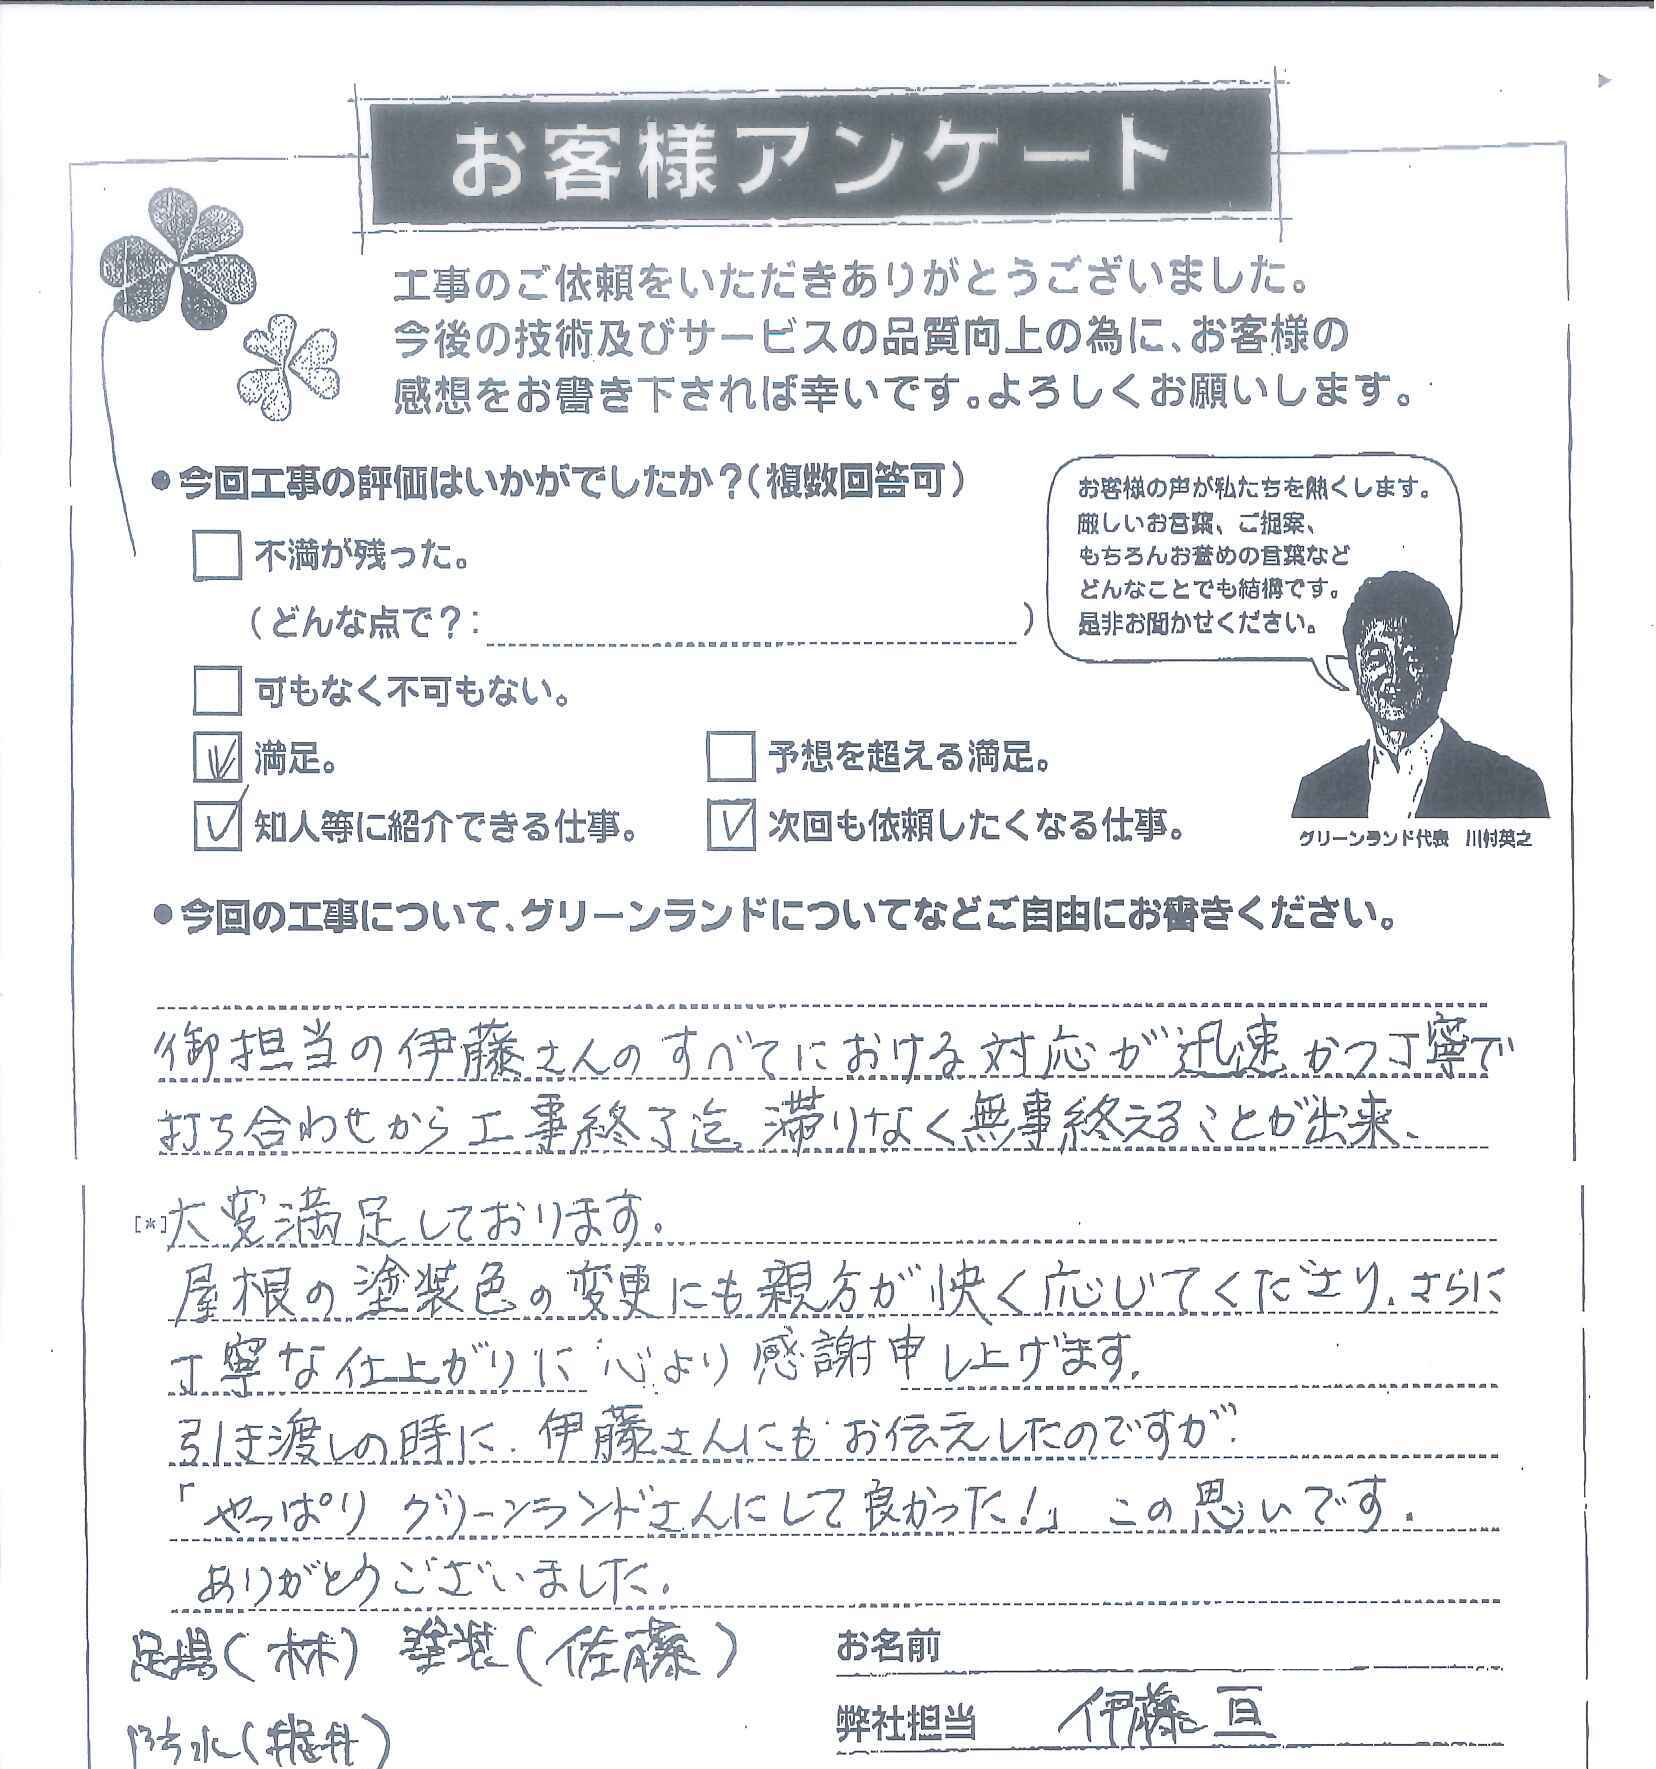 お客様アンケート
工事のご依頼をいただきありがとうございました。
今後の技術及びサービスの品質向上の為に、お客様の
感想をお書き下されば幸いです。よろしくお願いします。
●今回工事の評価はいかがでしたか？(複数回答可)
不満が残った。
(どんな点で？: )
可もなく不可もない。
満足。
予想を超える満足。
知人等に紹介できる仕事。
次回も依頼したくなる仕事。
お客様の声が私たちを熱くします。
厳しいお言葉、ご提案、
もちろんお誉めの言葉など
どんなことでも結構です。
是非お聞かせください。
グリーンランド代表 川村英之
●今回の工事について、グリーンランドについてなどご自由にお書きください。
御担当の伊藤さんのすべてにおける対応が迅速かつ丁寧で
打ち合わせから工事終了迄、滞りなく無事終えることが出来、
[*]大変満足しております。
屋根の塗装色の変更にも親方が快く応じてくださり、さらに
丁寧な仕上がりに心より感謝申し上げます。
引き渡しの時に、伊藤さんにもお伝えしたのですが、
「やっぱりグリーンランドさんにして良かった！」この思いです。
ありがとうございました。
足場(林) 塗装(佐藤)
防水( )
お名前
弊社担当 伊藤 亘